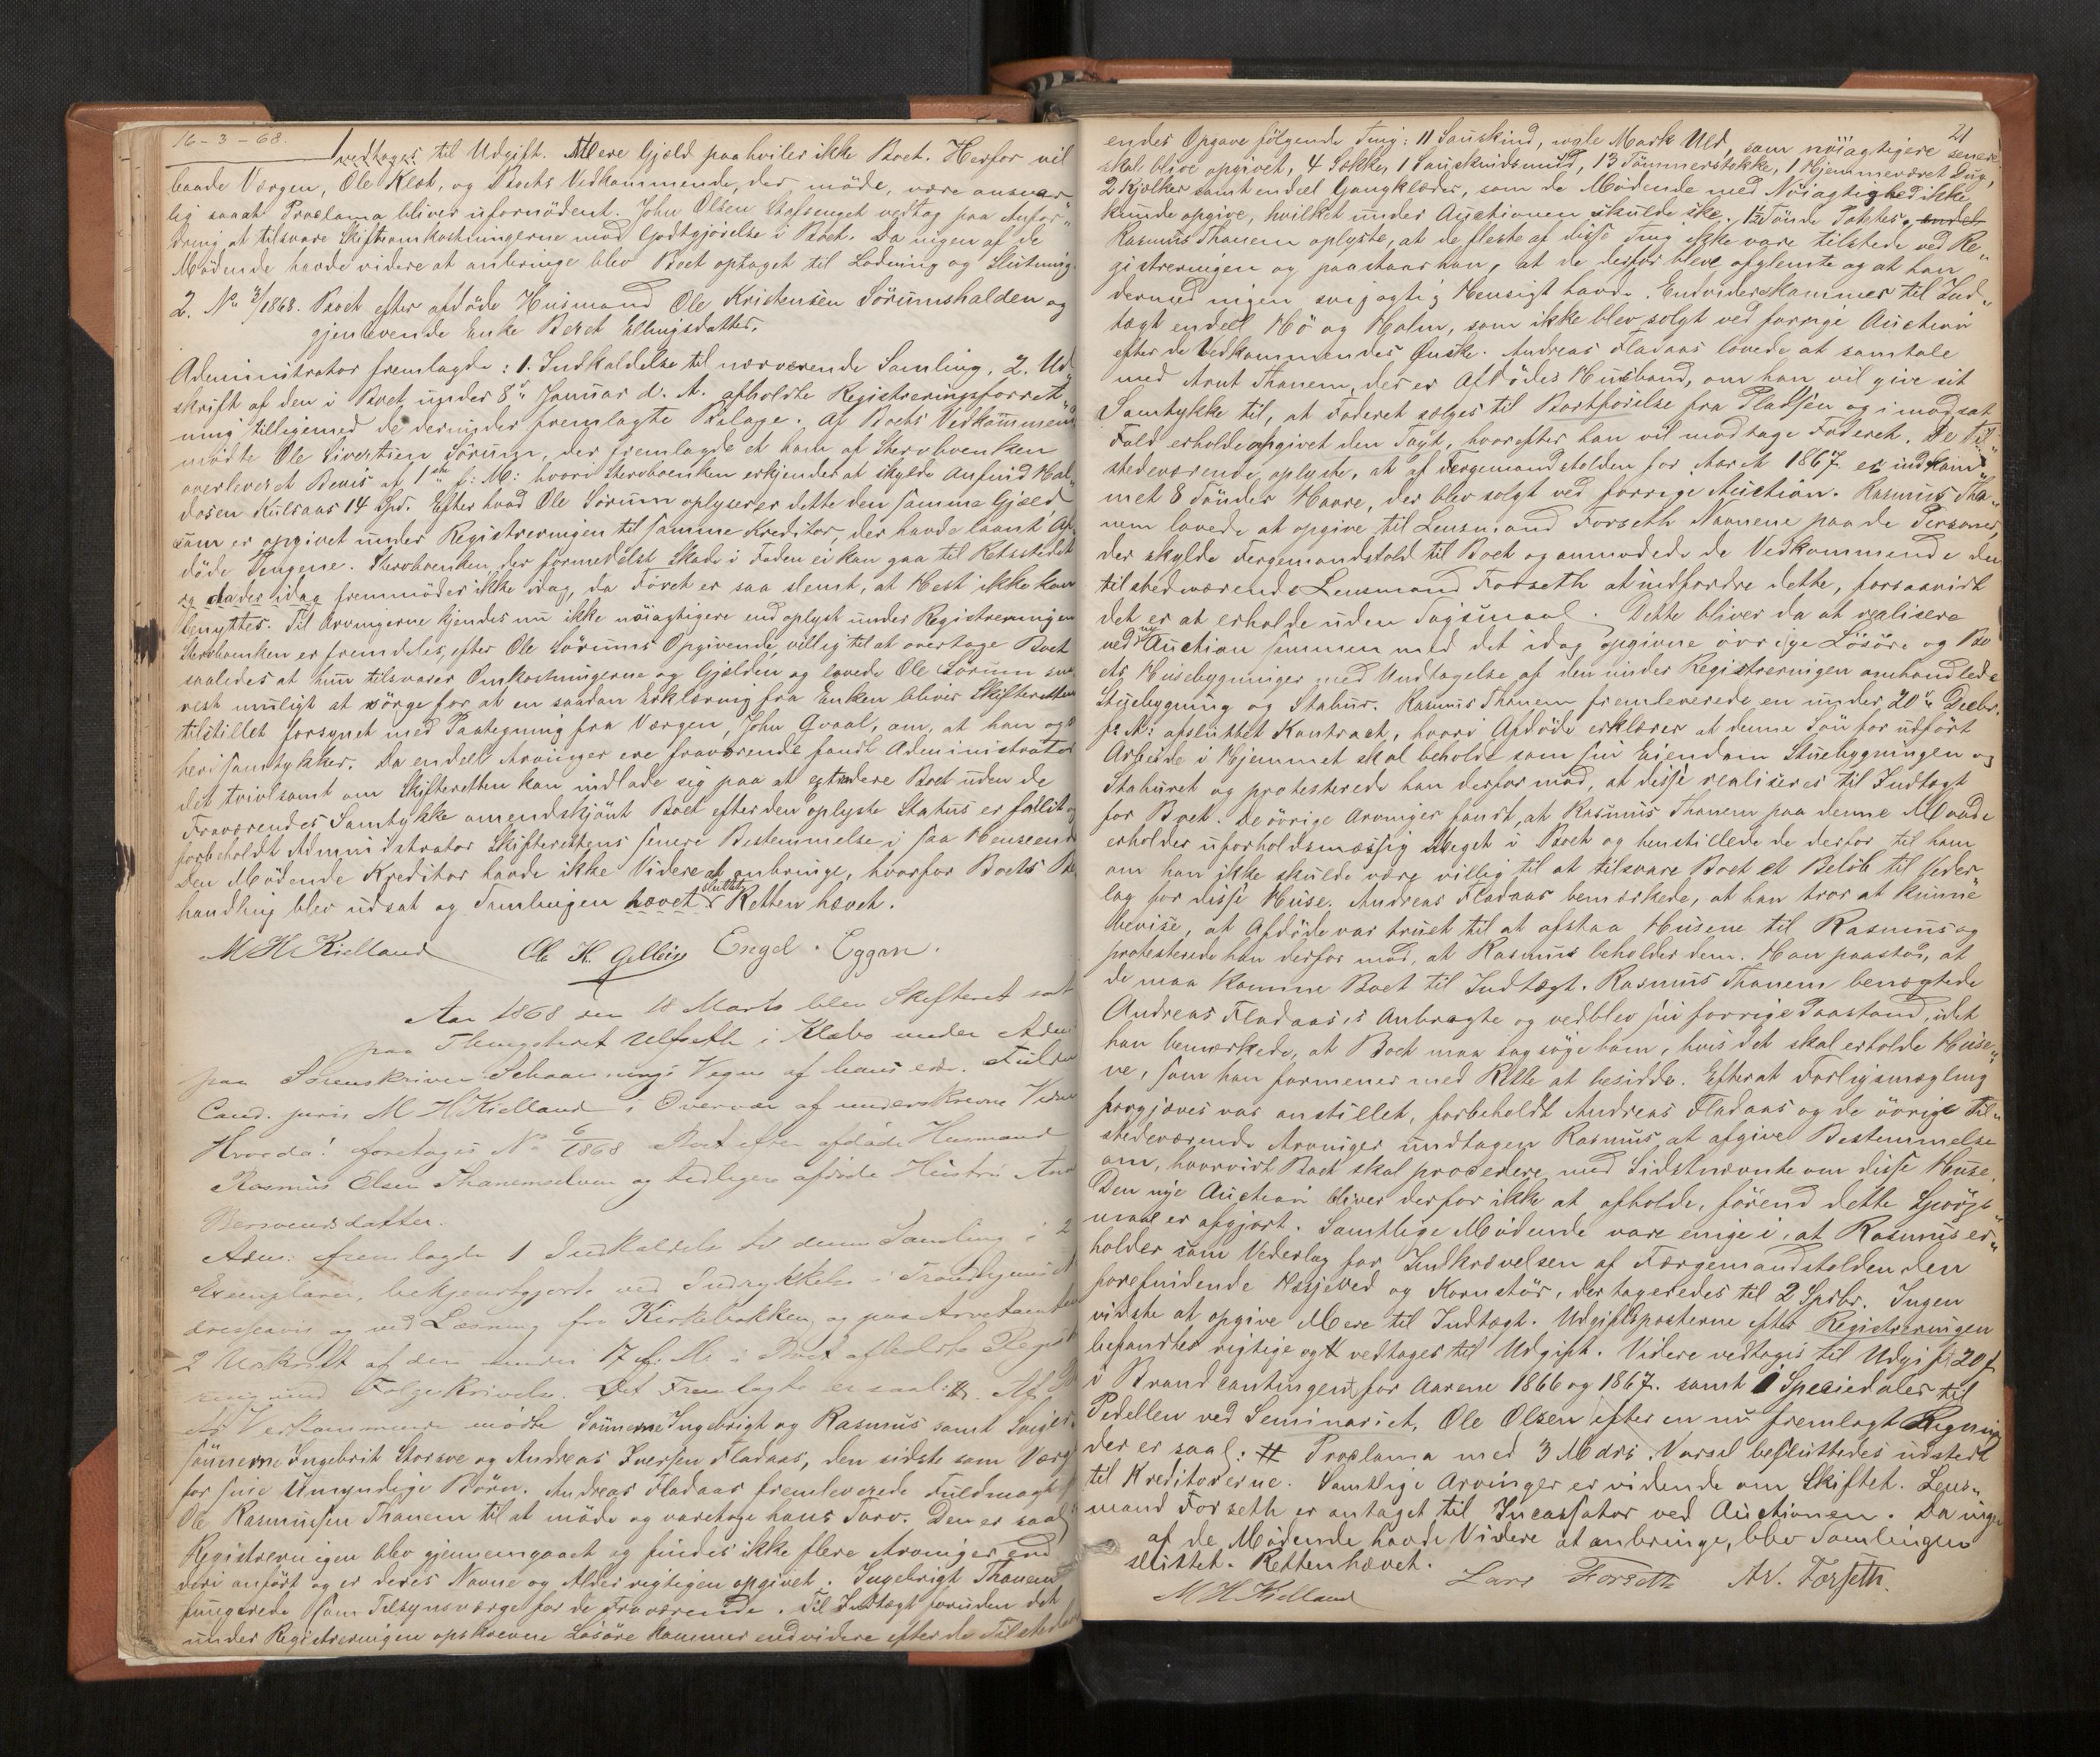 16-3-68.
vedtages til Udgift. Mere Gjæld paahviler ikke Boet. Herfor vil
baade Værgen, Ole Kleet, og Boets Vedkommende, der møde, være ansvar"
lig saaat Proclama bliver ufornødent. John Olsen Stafsenget vedtog paa Anfor"
dring at tilsvare Skifteomkostningerne mod Godtgjørelse i Boet. Da ingen af de
Mødende havde videre at anbringe blev Boet optaget til Lodning og Slutning.
2. No 2/1868. Boet efter afdøde Husmand Ole Kristensen Sörumshalden og
gjenlevende Enke Beret Ellingsdatter.
Administrator fremlagde: 1. Indkaldelse til nærværende Samling, 2. Ud"
skrift af den i Boet under 8de Januar d. A. afholdte Registreringsforret"
ning tilligemed de derunder fremlagte Bilage. Af Boets Vedkommende
mødte Ole Sivertsen Sörum, der fremlagde et ham af Stervboenken
overleveret Bevis af 1ste f: M: hvori Stervboenken erkjender at skylde Anfind Hal"
dosen Kulsaas 14 Spd. Efter hvad Ole Sörum oplyser er dette den samme Gjæld,
som er opgivet under Registreringen til samme Kreditor, der havde laant Af"
døde Pengene. Stervboenken, der formedelst Skade i Foden ei kan gaa til Retsstedet
og da der idag fremmøder ikke idag, da Føret er saa slemt, at Hest ikke kan
benyttes. Til Arvingerne kjendes nu ikke nøiagtigere end oplyst under Registreringen
Stervboenken er fremdeles, efter Ole Sörums Opgivende, villig til at overtage Boet
saaledes at hun tilsvarer Omkostningerne og Gjælden og lovede Ole Sörum sna"
rest muligt at sørge for at en saadan Erklæring fra Enken bliver Skifteretten
tilstillet forsynet med Paategning fra Værgen, John Graal, om, at han og"
heri samtykker. Da endeel Arvinger ere fraværende fandt Administrator
det tvivlsomt om Skifteretten kan indlade sig paa at extradere Boet uden de
Fraværendes Samtykke omendskjönt Boet efter den oplyste Status er fallit og
forbeholdt Administrator Skifterettens senere Bestemmelse i saa Henseende
Den Mødende Kreditor havde ikke Videre at anbringe, hvorfor Boets Be"
handling blev udsat og Samlingen hævet sluttet Retten hævet.
M H Kielland Ole K. Gellein Engel. Eggan.
Aar 1868 den 18 Marts blev Skifteret sat
paa Thingstedet Ulfseth i Klæbo under Adm:
paa Sorenskriver Schaannings Vegne af hans eds. Fuldm
Cand. juris M H Kielland i Overvær af underskrevne Vidner
Hvorda! foretages No 6/1868 Boet efter afdøde Husmand
Rasmus Elsen Thanemselven og tidligere afdøde Hustru Ane
Bersvendsdatter.
Adm: fremlagde 1 Indkaldelse til denne Samling i 2
Exemplarer, bekjendtgjort ved Indrykkelse i Trondhjems A
dresseavis og ved Læsning fra Kirkebakken og paa Arvetomten
2 Udskrift af den under 17 f. M. i Boet afholdte Regist
rering med Følgeskrivelse. Det Fremlagte er saal: #. Af Bo
ets Vedkommende mødte Sønnerne Ingebrigt og Rasmus samt Sviger
sönnerne Ingebrit Storsve og Andreas Iversen Fladaas, den sidste som Værge
for sine Umyndige Börn. Andreas Fladaas fremleverede Fuldmagt f
Ole Rasmussen Thanem til at møde og varetage hans Tarv. Den er saal
Registreringen blev gjennemgaaet og findes ikke flere Arvinger end
deri anført og er deres Navne og Alder rigtigen opgivet. Ingebrigt Thanem
fungerede som Tilsynsværge for de Fraværende. Til Indtægt foruden det
under Registreringen opskrevne Løsøre kommer endvidere efter de Tilstedevær
21
endes Opgave følgende Ting: 11 Saueskind, nogle Mark Uld, som nøiagtigere senere
skal blive opgivet, 4 Sække, 1 Saueskindsmud, 13 Tømmerstokke, 1 Hjemmevævet Dug,
2 Kjælker samt endeel Gangklæder, som de Mødende med Nøiagtighed ikke
kunde opgive, hvilket under Auctionen skulde ske. 1½ Tønde Potetes. endel
Rasmus Thanem oplyste, at de fleste af disse Ting ikke vare tilstede ved Re"
gistreringen og paastaar han, at de derfor bleve afglemte og at han
dermed ingen svigagtig Hensigt havde. Endvidere kommer til Ind"
tægt endeel Hö og Halm, som ikke blev solgt ved forrige Auction
efter de Vedkommendes Ønske. Andreas Fladaas lovede at samtale
med Arnt Thanem, der er Afdødes Husbond, om han vil give sit
Samtykke til, at Foderet sælges til Bortførelse fra Pladsen og i modsat
Fald erholde opgivet den Tagst, hvorefter han vil modtage Foderet. De Til"
stedeværende oplyste, at af Færgemandstolden for Aaret 1867 er indkom"
met 8 Tönder Havre, der blev solgt ved forrige Auction. Rasmus Tha"
nem lovede at opgive til Lensmand Forseth Navnene paa de Personer,
der skylde Færgemandstold til Boet og anmodede de Vedkommende den
tilstedeværende Lensmand Forseth at indfordre dette, forsaavidt
det er at erholde uden Søgsmaal. Dette bliver da at realisere
ved ny Auction sammen med det idag opgivne øvrige Løsøre og Bo
ets Husebygninger med Undtagelse af den under Registreringen omhandlede
Stuebygning og Stabur. Rasmus Thanem fremleverede en under 20de Decbr.
f: A: afsluttet Kontract, hvori Afdøde erklærer at denne Søn for udført
Arbeide i Hjemmet skal beholde som sin Eiendom Stuebygningen og
Staburet og protesterede han derfor mod, at disse realiseres til Indtægt
for Boet. De øvrige Arvinger fandt, at Rasmus Thanem paa denne Maade
erholder uforholdsmæssig Meget i Boet og henstillede de derfor til ham
om han ikke skulde være villig til at tilsvare Boet et Beløb til Veder"
lag for disse Huse. Andreas Fladaas bemærkede, at han tror at kunne
bevise, at Afdøde var truet til at afstaa Husene til Rasmus og
protesterede han derfor mod, at Rasmus beholder dem. Han paastod, at
de maa komme Boet til Indtægt. Rasmus Thanem benægtede
Andreas Fladaas's Anbragte og vedblev sin forrige Paastand, idet
han bemærkede, at Boet maa sagsøge ham, hvis det skal erholde Huse"
ne, som han formener med Rette at besidde. Efterat Forligsmægling
forgjæves var anstillet, forbeholdt Andreas Fladaas og de övrige Til"
stedeværende Arvinger undtagen Rasmus, at afgive Bestemmelse
om, hvorvidt Boet skal procedere med Sidstnævnte om disse Huse.
Den nye Auction bliver derfor ikke at afholde, förend dette Spørgs"
maal er afgjort. Samtlige Mødende vare enige i, at Rasmus er"
holder som Vederlag for Indkrævelsen af Færgemandstolden den
forefindende Hesjeved og Kornstör, der tageredes til 2 Spdlr. Ingen
vidste at opgive Mere til Indtægt. Udgiftsposterne efter Registreringen
befandtes rigtige og vedtages til Udgift. Videre vedtages til Udgift 20 f
i Brandcontingent for Aarene 1866 og 1867. samt 1 Speciedaler til
Pedellen ved Seminariet, Ole Olsen efter en nu fremlagt Regning
der er saal: # Proclama med 3 Mdrs. Varsel besluttedes udstedt
til Kreditorerne. Samtlige Arvinger er vidende om Skiftet. Lens"
mand Forseth er antaget til Incassator ved Auctionen. Da ingen
af de Mødende havde Videre at anbringe, blev Samlingen
sluttet. Retten hævet.
M H Kielland Lars Forseth At. Forseth.